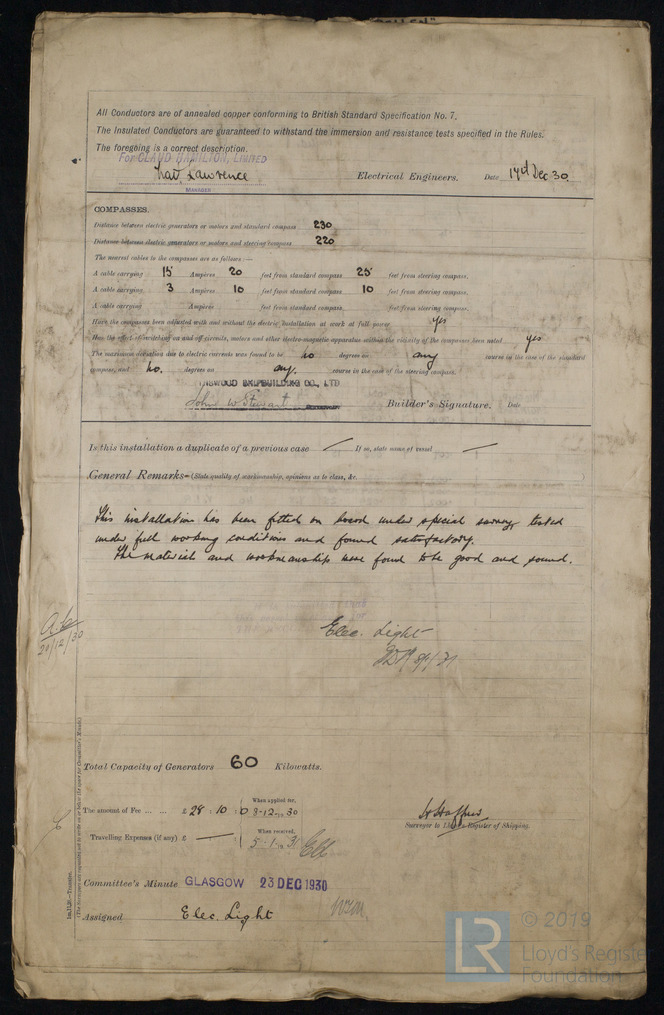 All Conductors are of annealed copper conforming to British Standard Specification No. 7.
The Insulated Conductors are guaranteed to withstand the immersion and resistance tests specified in the Rules.
The foregoing is a correct description.
For CLAUD HAMILTON, LIMITED
Lawrence Electrical Engineers. Date 17th Dec. 30.
MANAGER
COMPASSES.
Distance between electric generators or motors and standard compass 230
Distance between electric generators or motors and steering compass 220
The nearest cables to the compasses are as follows:—
A cable carrying 15 Ampères 20 feet from standard compass 25 feet from steering compass.
A cable carrying 3 Ampères 10 feet from standard compass 10 feet from steering compass.
A cable carrying Ampères feet from standard compass feet from steering compass.
Have the compasses been adjusted with and without the electric installation at work at full power yes
Has the effect of switching on and off circuits, motors and other electro-magnetic apparatus within the vicinity of the compasses been noted yes
The maximum deviation due to electric currents was found to be no degrees on any course in the case of the standard
compass, and no. degrees on any. course in the case of the steering compass.
SHIPBUILDING CO., LTD
John W Stewart Builder's Signature. Date
Is this installation a duplicate of a previous case / If so, state name of vessel —
General Remarks—(State quality of workmanship, opinions as to class, &c.
This installation has been fitted on board under special survey, tested
under full working conditions and found satisfactory.
The materials and workmanship were found to be good and sound.
20/12/30
Elec. Light
Total Capacity of Generators 60 Kilowatts.
The amount of Fee ... ... £ 28 : 10 : 0 When applied for, 8-12-1930
Travelling Expenses (if any) £ — : : When received, 5.1.1931
Surveyor to Lloyd's Register of Shipping.
Committee's Minute GLASGOW 23 DEC 1930
Assigned Elec. Light
© 2019
LR Lloyd's Register
Foundation